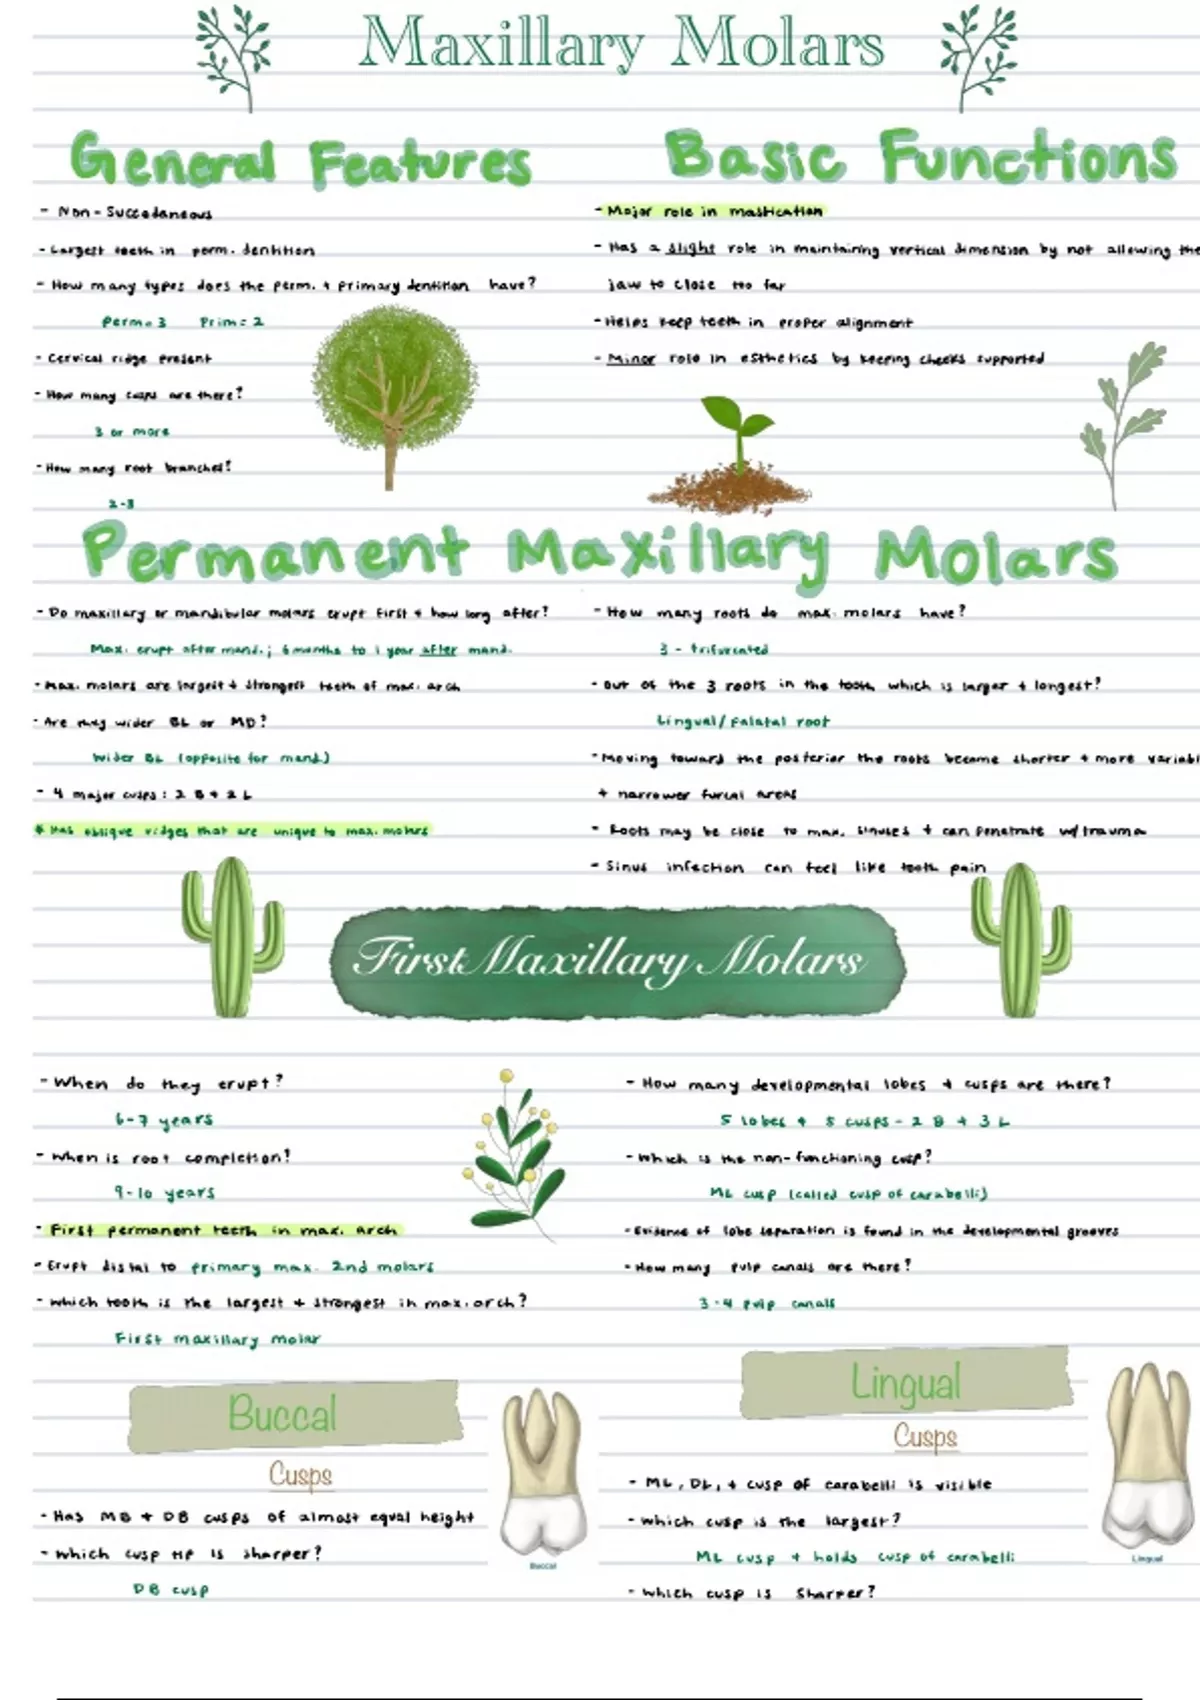 Maxillary Molars
General Features
- Non-Succedaneous
- Largest teeth in perm. dentition
- How many types does the perm. + primary dentition have?
Perm = 3 Prim = 2
- Cervical ridge present
- How many cusps are there?
3 or more
- How many root branches?
2-3
Basic Functions
- Major role in mastication
- Has a slight role in maintaining vertical dimension by not allowing the
jaw to close too far
- Helps keep teeth in proper alignment
- Minor role in esthetics by keeping cheeks supported
Permanent Maxillary Molars
- Do maxillary or mandibular molars erupt first + how long after?
Max. erupt after mand.; 6 months to 1 year after mand.
- Max. molars are largest + strongest teeth of max. arch
- Are they wider BL or MD?
Wider BL (opposite for mand.)
- 4 major cusps: 2 B + 2 L
* Has oblique ridges that are unique to max. molars
- How many roots do max. molars have?
3 - trifurcated
- Out of the 3 roots in the tooth which is larger + longest?
Lingual/Palatal root
- Moving toward the posterior the roots become shorter + more
+ narrower furcal areas
- Roots may be close to max. sinuses + can penetrate w/ trauma
- Sinus infection can feel like tooth pain
First Maxillary Molars
- When do they erupt?
6-7 years
- When is root completion?
9-10 years
- First permanent teeth in max. arch
- Erupt distal to primary max. 2nd molars
- Which tooth is the largest + strongest in max. arch?
First maxillary molar
- How many developmental lobes + cusps are there?
5 lobes + 5 cusps - 2 B + 3 L
- Which is the non-functioning cusp?
ML cusp (called cusp of carabelli)
- Evidence of lobe separation is found in the developmental grooves
- How many pulp canals are there?
3-4 pulp canals
Buccal
Cusps
- Has MB + DB cusps of almost equal height
- Which cusp tip is sharper?
DB cusp
Buccal
Lingual
Cusps
- ML, DL, + cusp of carabelli is visible
- Which cusp is the largest?
ML cusp + holds cusp of carabelli
- Which cusp is sharper?
Lingual